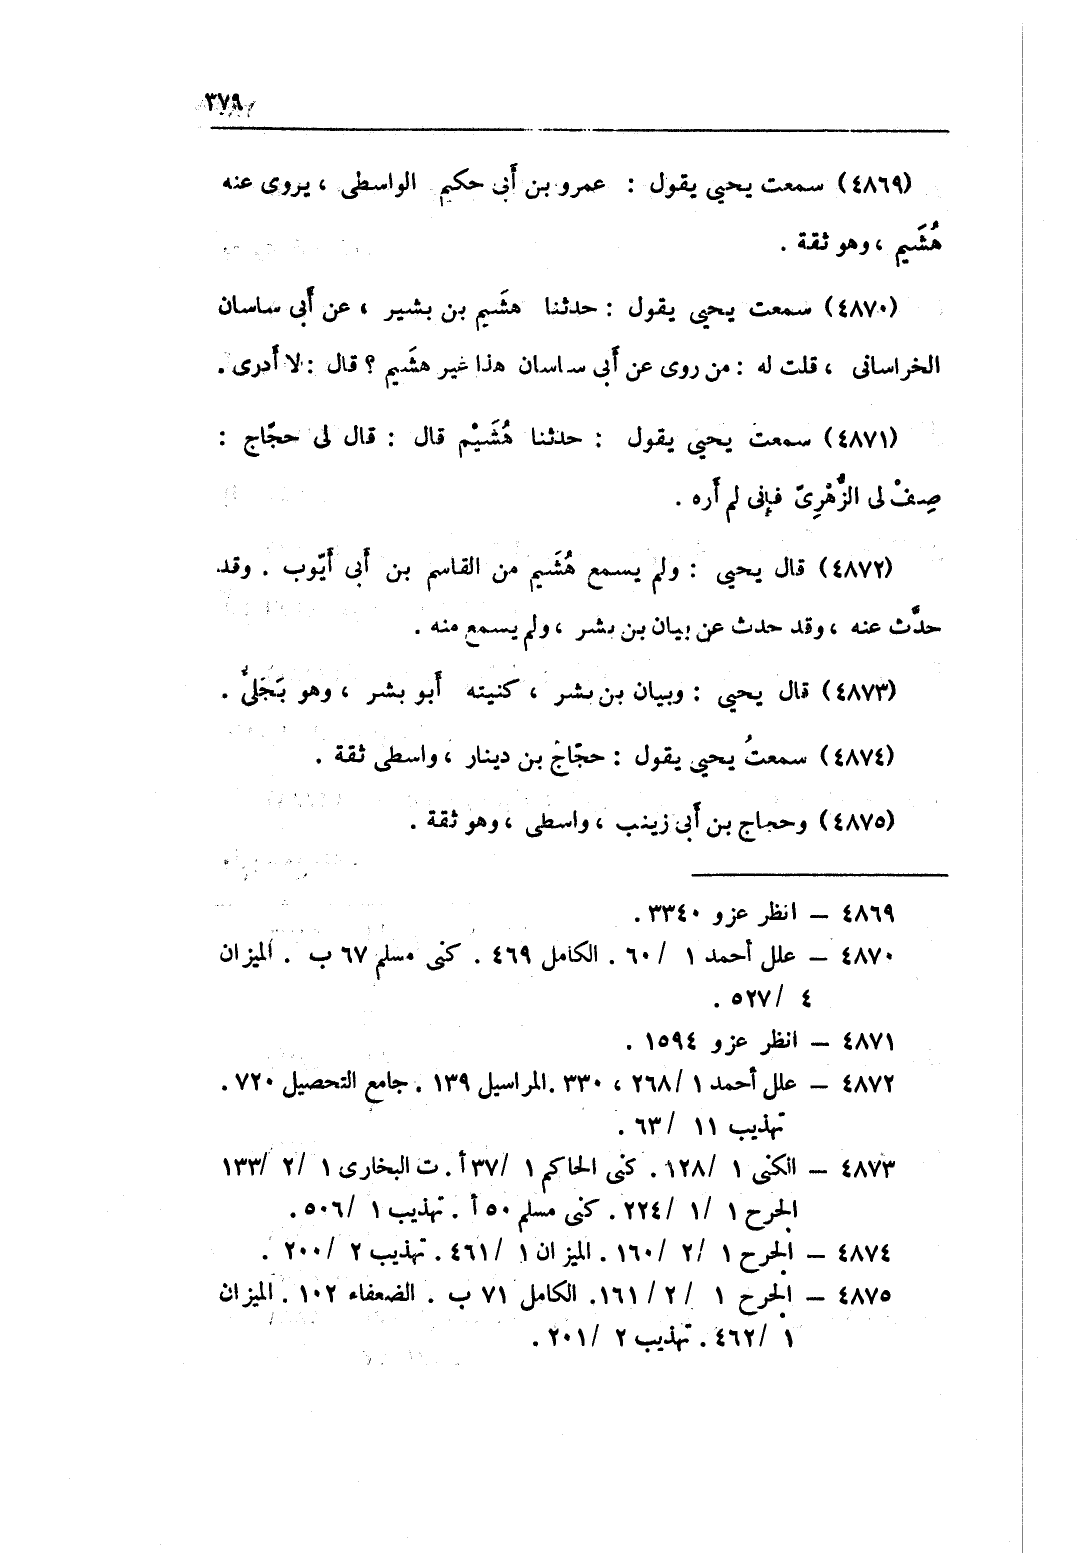 ٣٧٩
(٤٨٦٩) سمعت يحيى يقول : عمرو بن أبى حكيم الواسطى ، يروى عنه
هُشَيم ، وهو ثقة .
(٤٨٧٠) سمعت يحيى يقول : حدثنا هشَيم بن بشير ، عن أبى ساسان
الخراسانى ، قلت له : من روى عن أبى ساسان هذا غير هشَيم ؟ قال : لا أدرى .
(٤٨٧١) سمعت يحيى يقول : حدثنا هُشَيْم قال : قال لى حجّاج :
صِفْ لى الزُّهْرِىّ فإنى لم أره .
(٤٨٧٢) قال يحيى : ولم يسمع هُشَيم من القاسم بن أبى أيّوب . وقد
حدَّث عنه ، وقد حدث عن بيان بن بشر ، ولم يسمع منه .
(٤٨٧٣) قال يحيى : وبيان بن بشر ، كنيته أبو بشر ، وهو بَجَلىٌّ .
(٤٨٧٤) سمعتُ يحيى يقول : حجّاجُ بن دينار ، واسطى ثقة .
(٤٨٧٥) وحجاج بن أبى زينب ، واسطى ، وهو ثقة .
٤٨٦٩ – انظر عزو ٣٣٤٠ .
٤٨٧٠ – علل أحمد ١ /٦٠ . الكامل ٤٦٩ . كنى مسلم ٦٧ ب . الميزان
٤ /٥٢٧ .
٤٨٧١ – انظر عزو ١٥٩٤ .
٤٨٧٢ – علل أحمد ١ /٢٦٨ ، ٣٣٠ .المراسيل ١٣٩ . جامع التحصيل ٧٢٠ .
تهذيب ١١ /٦٣ .
٤٨٧٣ – الكنى ١ /١٢٨ . كنى الحاكم ١ /٣٧ أ . ت البخارى ١ /٢ /١٣٣
الجرح ١ /١ /٢٢٤ . كنى مسلم ٥٠ أ . تهذيب ١ /٥٠٦ .
٤٨٧٤ – الجرح ١ /٢ /١٦٠ . الميزان ١ /٤٦١ . تهذيب ٢ /٢٠٠ .
٤٨٧٥ – الجرح ١ /٢ /١٦١ . الكامل ٧١ ب . الضعفاء ١٠٢ . الميزان
١ /٤٦٢ . تهذيب ٢ /٢٠١ .